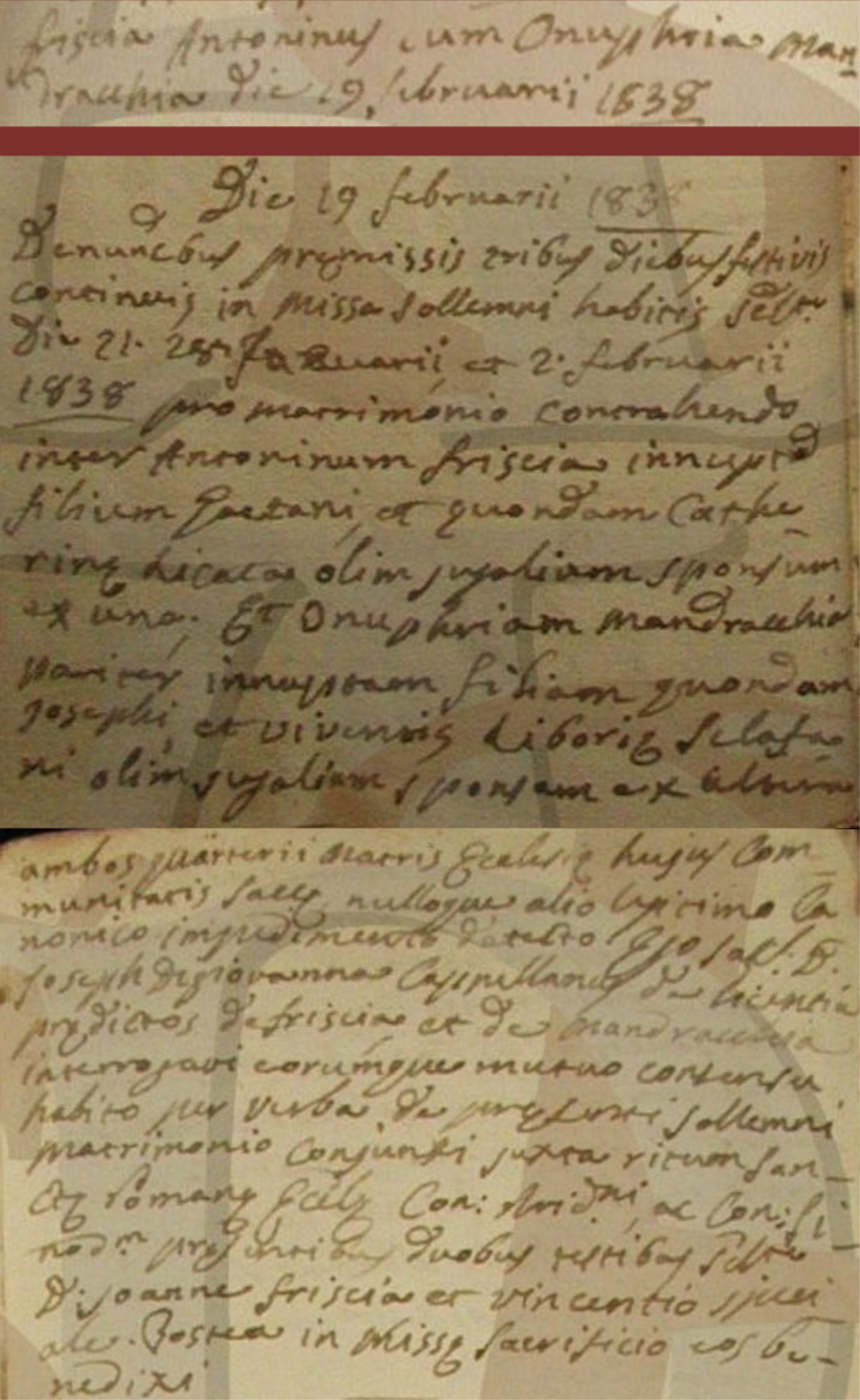 friscia Antoninus cum Onuphria Man
dracchia die 19 februarii 1838
Die 19 februarii 1838
Denunc̄bus premissis tribus diebus festivis
continuis in Missa sollemni habitis
Die 21. 28. Januarii et 2. februarii
1838 pro matrimonio contrahendo
inter Antoninum friscia innuptū
filium Gaetani, et quondam Cathe
rinę Licata olim jugalium sponsum
ex una. Et Onuphriam Mandracchia
pariter innuptam filiam quondam
Josephi, et viventis Liborię Sclafa
ni olim jugalium sponsam ex altera
ambos quarterii Matris Ecclesię hujus Com_
munitatis Saccę, nulloque alio legitimo Ca
nonico impedimento detecto Ego Sac. D.
Joseph Digiovanna Cappellanus de licentia
prędictos de friscia et de Mandracchia
interrogavi eorumque mutuo consensu
habito per verba de pręsenti sollemni
matrimonio Conjunxi juxta ritum San_
ctę Romanę Con: ac Con: Si_
pręsentibus duobus testibus
D. Joanne friscia et Vincentio Spezi
ale. Postea in Missę sacrificio eos be_
nedixi